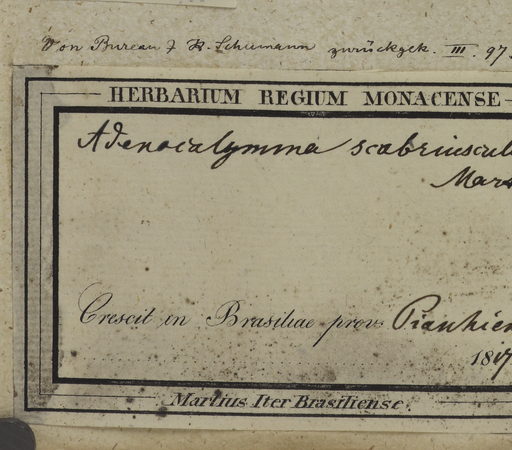 Von Bureau & K. Schumann zurückgek. III. 97.
HERBARIUM REGIUM MONACENSE
Adenocalymma scabriuscul
Mar
Crescit in Brasiliae prov. Piauhien
1817
Martius Iter Brasiliense.